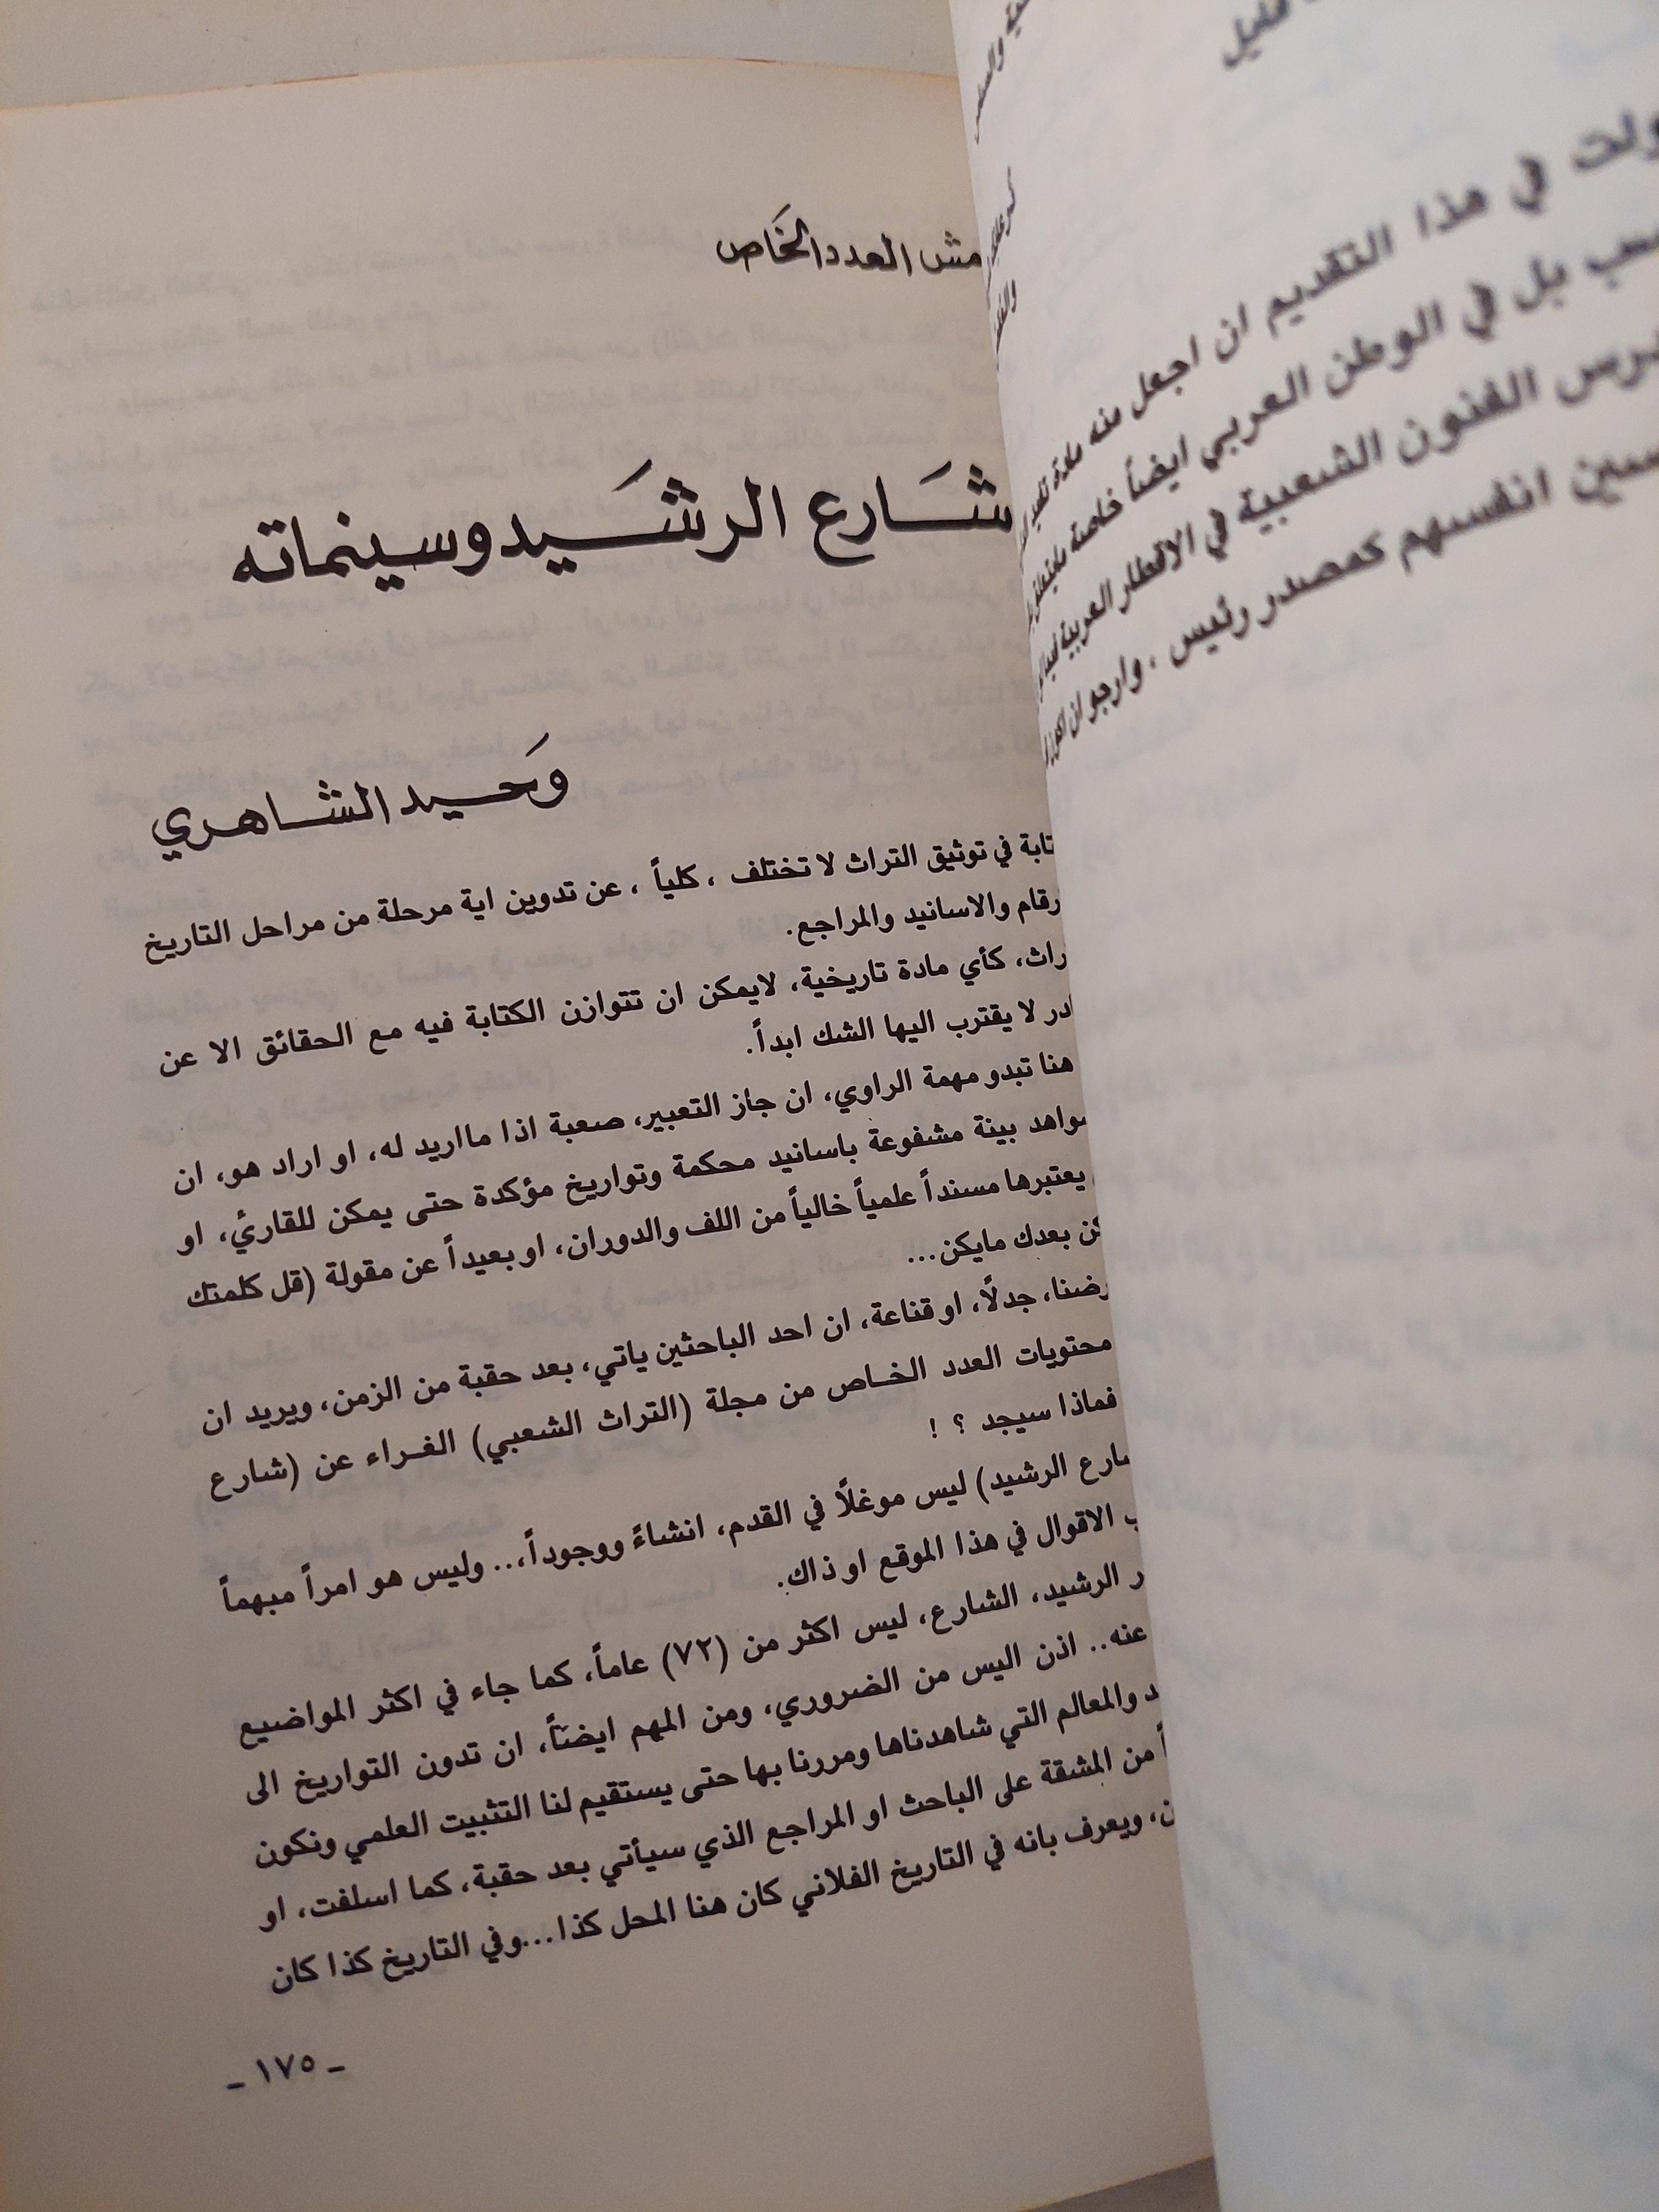 العدد الخاص
شارع الرشيد وسينماته
وحيد الشاهري
في توثيق التراث لا تختلف ، كلياً ، عن تدوين اية مرحلة من مراحل التاريخ
والاسانيد والمراجع.
كأي مادة تاريخية، لايمكن ان تتوازن الكتابة فيه مع الحقائق الا عن
لا يقترب اليها الشك ابداً.
هنا تبدو مهمة الراوي، ان جاز التعبير، صعبة اذا مااريد له، او اراد هو، ان
بينة مشفوعة باسانيد محكمة وتواريخ مؤكدة حتى يمكن للقاريء، او
يعتبرها مسنداً علمياً خالياً من اللف والدوران، او بعيداً عن مقولة (قل كلمتك
بعدك مايكن...
جدلاً، او قناعة، ان احد الباحثين ياتي، بعد حقبة من الزمن، ويريد ان
محتويات العدد الخاص من مجلة (التراث الشعبي) الغراء عن (شارع
فماذا سيجد ؟ !
الرشيد) ليس موغلاً في القدم، انشاءً ووجوداً،.. وليس هو امراً مبهماً
الاقوال في هذا الموقع او ذاك.
الرشيد، الشارع، ليس اكثر من (٧٢) عاماً، كما جاء في اكثر المواضيع
عنه.. اذن اليس من الضروري، ومن المهم ايضاً، ان تدون التواريخ الى
والمعالم التي شاهدناها ومررنا بها حتى يستقيم لنا التثبيت العلمي ونكون
من المشقة على الباحث او المراجع الذي سيأتي بعد حقبة، كما اسلفت، او
ويعرف بانه في التاريخ الفلاني كان هنا المحل كذا...وفي التاريخ كذا كان
ـ ١٧٥ ـ
في هذا التقديم ان اجعل منه مادة
بل في الوطن العربي ايضاً خاصة
الفنون الشعبية في الاقطار العربية
انفسهم كمصدر رئيس . وارجو ان